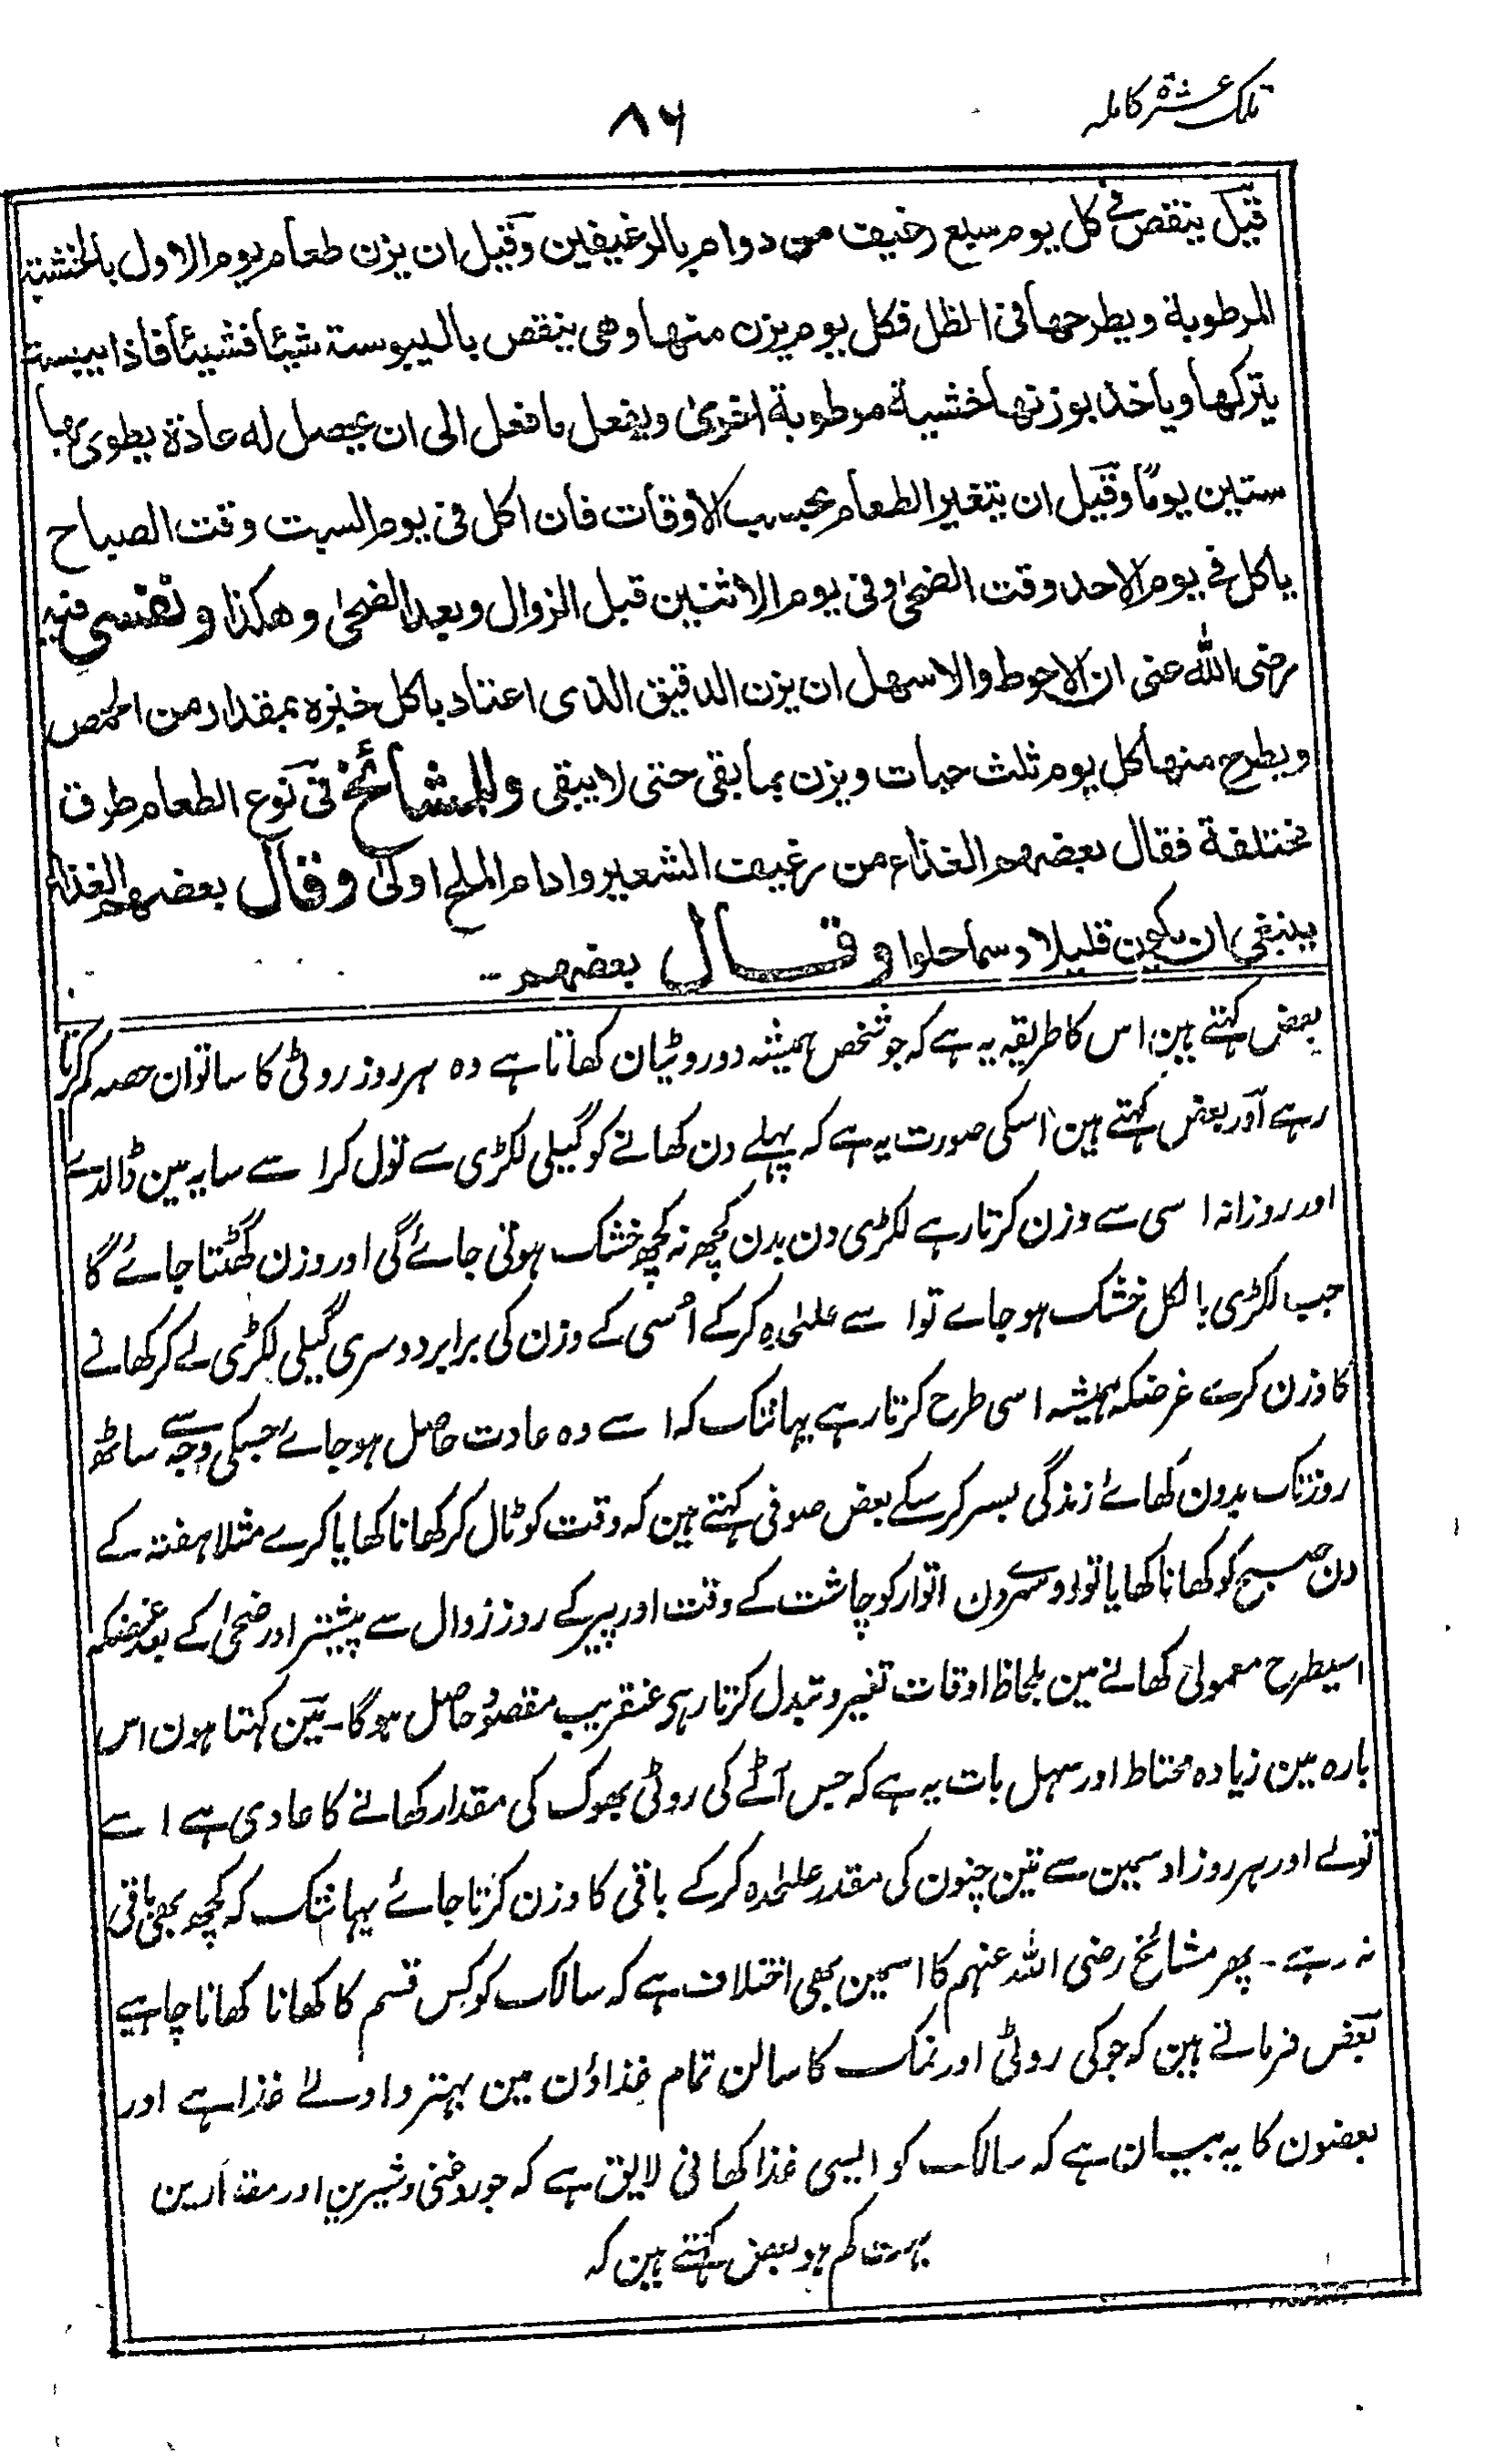 تلک عشرۃ کاملہ
۸۶
قیل ینقص فی کل یوم سبع رغیف من دوام بالرغیفین وقیل ان یزن طعام یوم الاول بالخشبۃ
المرطوبۃ ویطرحها فی الظل فکل یوم یزن منها وهی ینقص بالیبوستہ شیئا فشیئا فاذا یبست
یترکها ویاخذ بوزنها خشبۃ مرطوبۃ اخریٰ ویفعل ما فعل الی ان یحصل له عادۃ یطوی بها
ستین یومًا وقیل ان یتغیر الطعام بحسب الاوقات فان اکل فی یوم السبت وقت الصباح
یاکل فی یوم الاحد وقت الضحیٰ وفی یوم الاثنین قبل الزوال وبعد الضحیٰ وهکذا و نفسی فیہ
رضی اللہ عنی ان الاحوط والاسهل ان یزن الدقیق الذی اعتاد باکل خبزہ بمقدار من الحمص
ویطرح منها کل یوم ثلث حبات ویزن بما بقی حتی لا یبقی وللمشائخ فی نوع الطعام طرق
مختلفۃ فقال بعضهم الغذاء من رغیف الشعیر وادام الملح اولیٰ وقال بعضهم الغذاء
ینبغی ان یکون قلیلا دسما حلوا وقال بعضهم
بعض کہتے ہین اس کا طریقہ یہ ہے کہ جو شخص ہمیشہ دو روٹیان کھاتا ہے وہ ہر روز روٹی کا ساتوان حصہ کم کرتا
رہے اور بعض کہتے ہین اسکی صورت یہ ہے کہ پہلے دن کھانے کو گیلی لکڑی سے تول کر اسے سایہ مین ڈالدے
اور روزانہ اسی سے وزن کرتا رہے لکڑی دن بدن کچھ نہ کچھ خشک ہوتی جائے گی اور وزن گھٹتا جائے گا
جب لکڑی بالکل خشک ہو جاے تو اسے علیٰحدہ کرکے اُسی کے وزن کی برابر دوسری گیلی لکڑی لے کر کھانے
کا وزن کرے غرضکہ ہمیشہ اسی طرح کرتا رہے یہانتک کہ اسے وہ عادت حاصل ہو جاے جسکی وجہ سے ساٹھ
روز تک بدون کھائے زندگی بسر کر سکے بعض صوفی کہتے ہین کہ وقت کو ٹال کر کھانا کھایا کرے مثلا ہفتہ کے
دن صبح کو کھانا کھایا تو دوسرے دن اتوار کو چاشت کے وقت اور پیر کے روز زوال سے پیشتر اور ضحیٰ کے بعد غرضکہ
اسیطرح معمولی کھانے مین بلحاظ اوقات تغیر و تبدل کرتا رہے عنقریب مقصود حاصل ہوگا۔ مین کہتا ہون اس
بارہ مین زیادہ محتاط اور سہل بات یہ ہے کہ جس آٹے کی روٹی بھوک کی مقدار کھانے کا عادی ہے اسے
تولے اور ہر روز اوسمین سے تین چنون کی مقدر علیٰحدہ کرکے باقی کا وزن کرتا جائے یہانتک کہ کچھ بھی باقی
نہ رہے۔ پھر مشائخ رضی اللہ عنہم کا اسمین بھی اختلاف ہے کہ سالک کو کس قسم کا کھانا کھانا چاہیے
بعض فرماتے ہین کہ جو کی روٹی اور نمک کا سالن تمام غذاؤن مین بہتر و اولےٰ غذا ہے اور
بعضون کا یہ بیان ہے کہ سالک کو ایسی غذا کھانی لایق ہے کہ جو روغنی و شیرین اور مقدارین
بہت کم ہو بعض کہتے ہین کہ